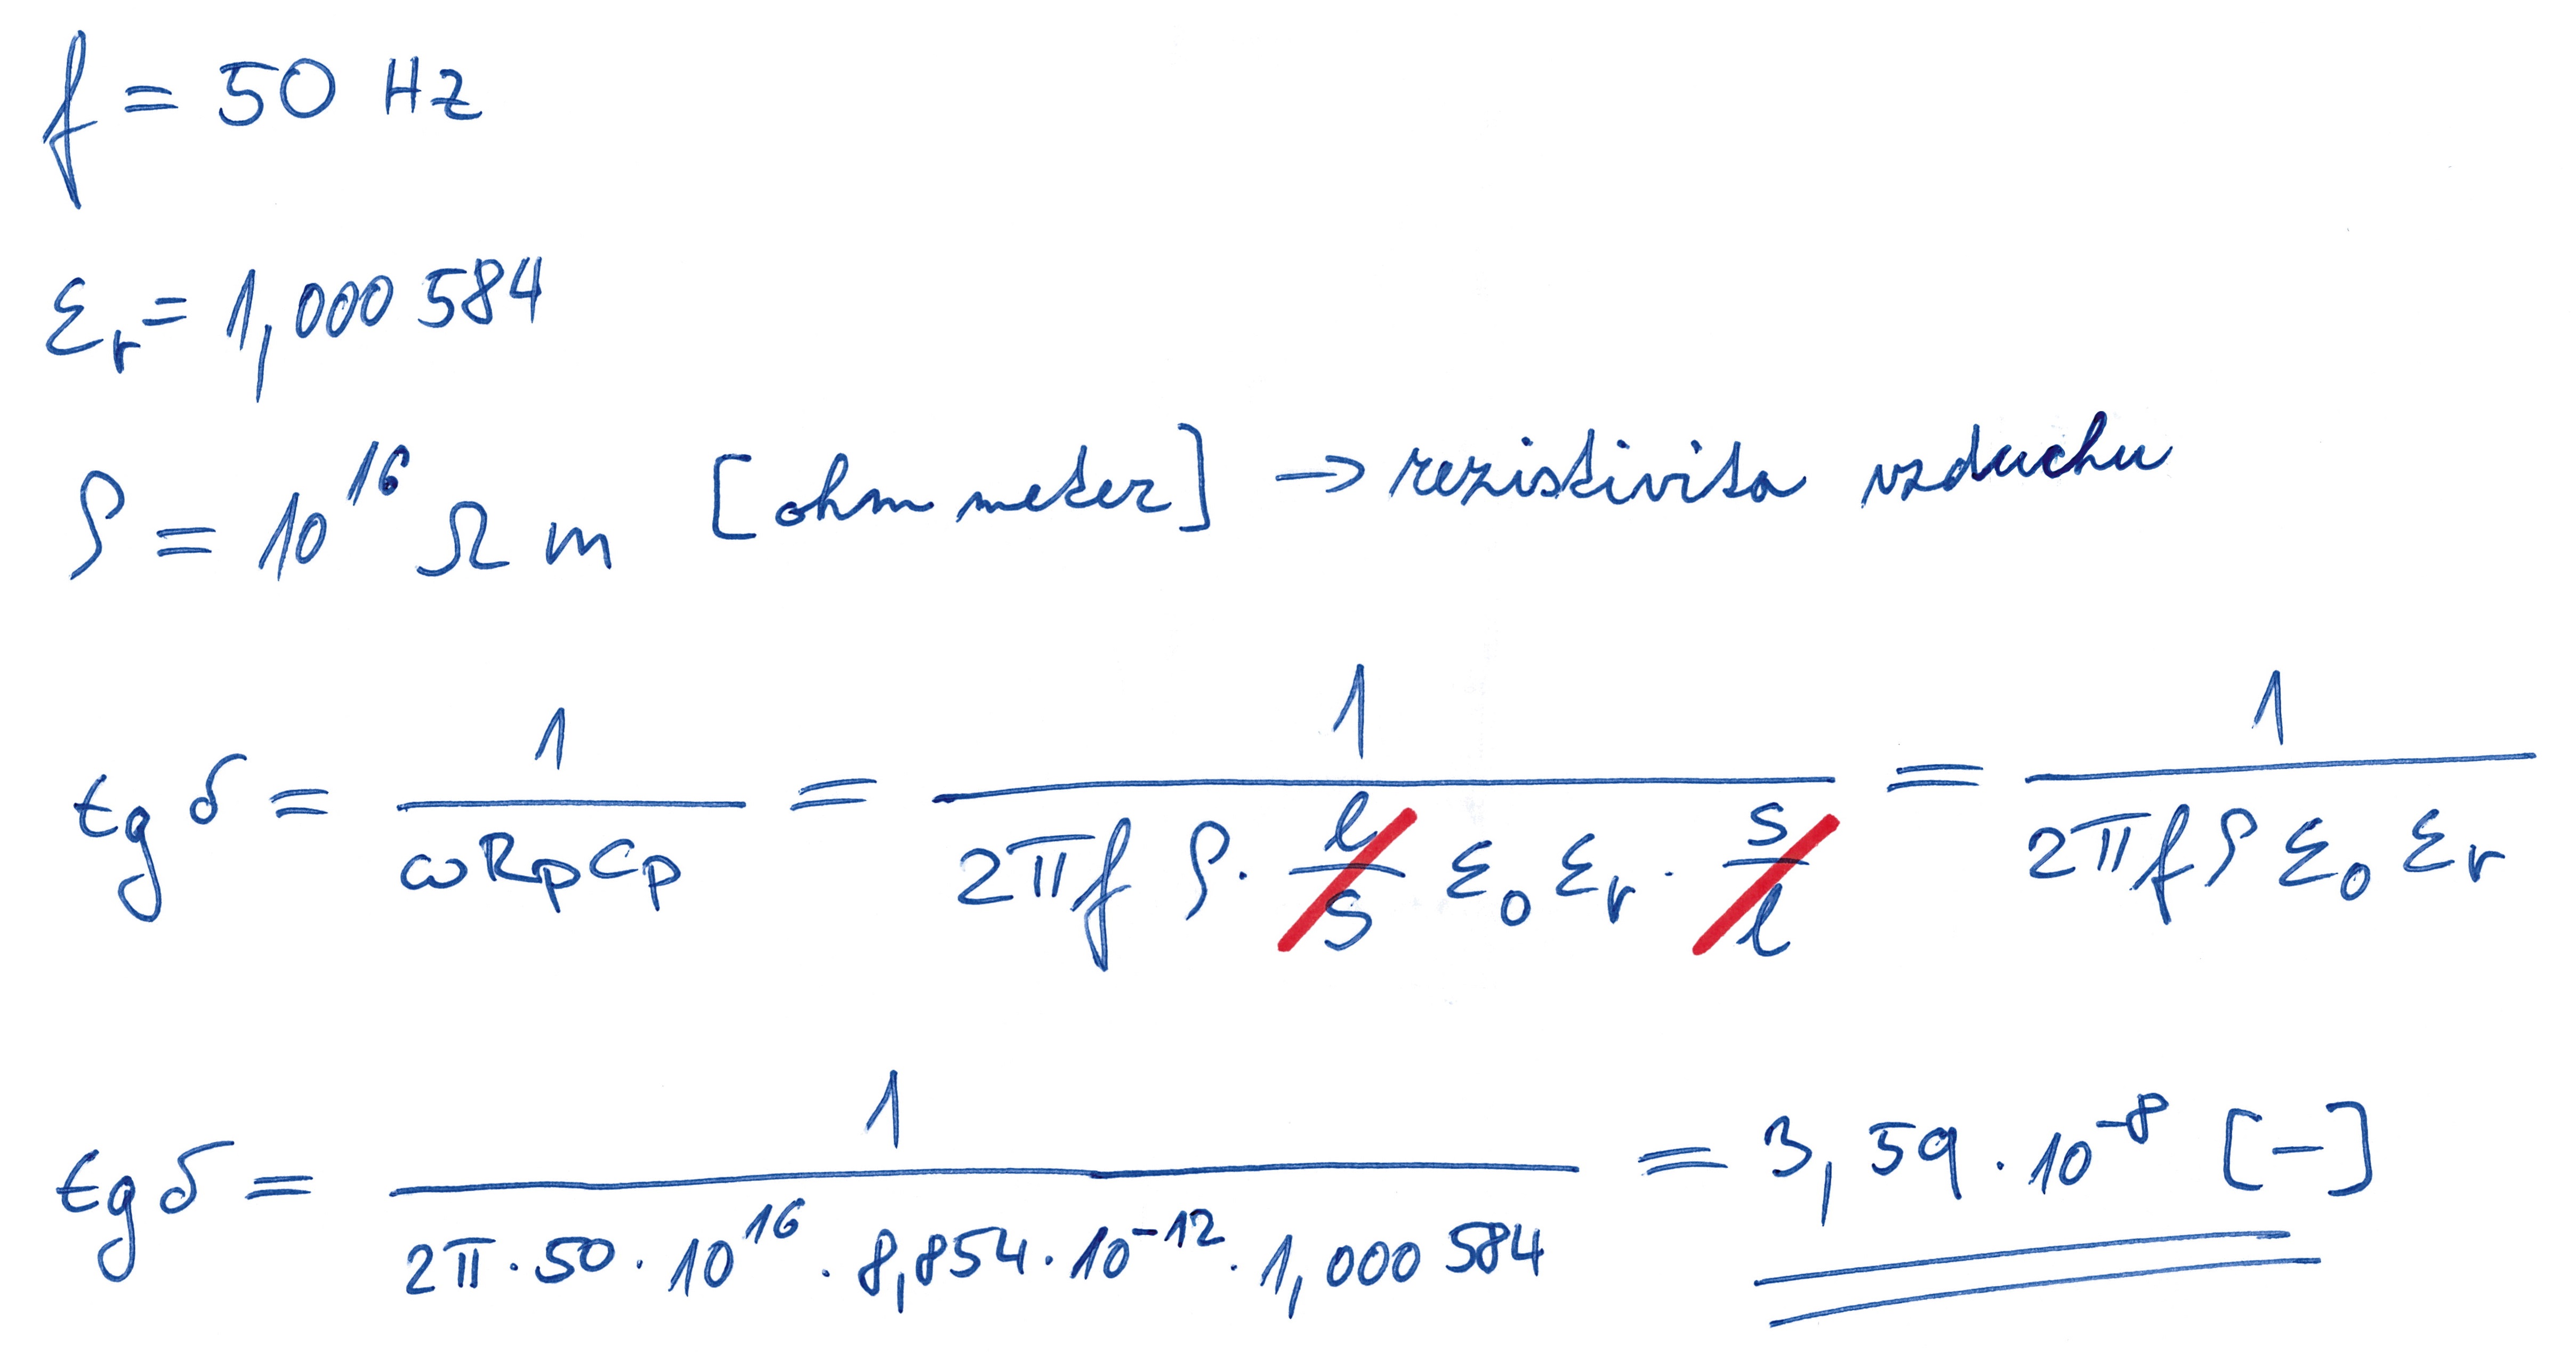 f = 50 Hz
εr = 1,000 584
ρ = 10^16 Ω m [ohm meter] → rezistivita vzduchu
tg δ = 1 / (ωRpCp) = 1 / (2πf ρ · l/S ε0 εr · S/l) = 1 / (2πf ρ ε0 εr)
tg δ = 1 / (2π · 50 · 10^16 · 8,854 · 10^-12 · 1,000 584) = 3,59 · 10^-8 [-]